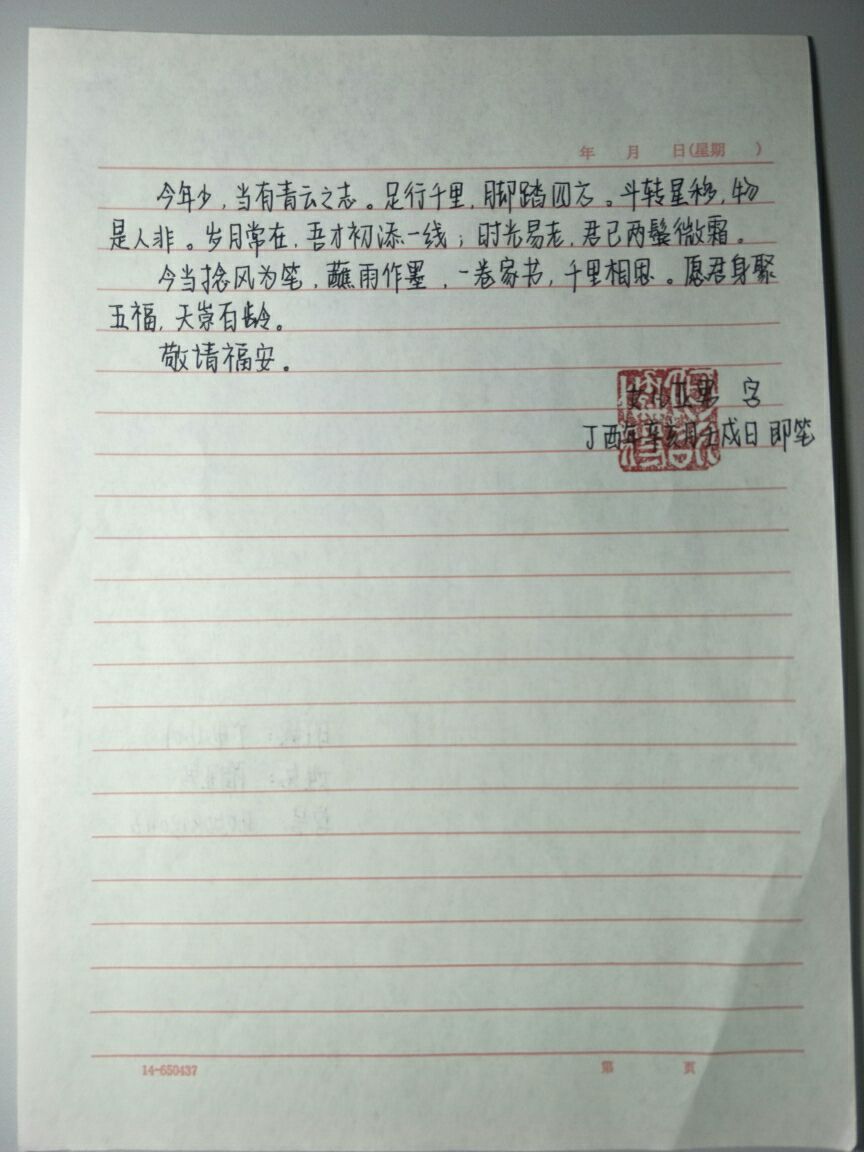 年 月 日(星期 )
今年少,当有青云之志。足行千里,脚踏四方。斗转星移,物
是人非。岁月常在,吾才初添一线;时光易老,君已两鬓微霜。
今当捻风为笔,蘸雨作墨,一卷家书,千里相思。愿君身聚
五福,天崇百龄。
敬请福安。
字
丁酉年辛亥月壬戌日 即笔
14-650437 第 页